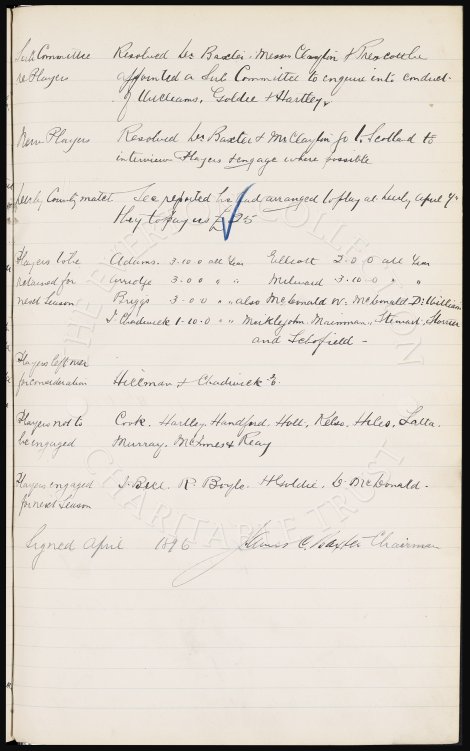 Sub Committee Resolved Dr Baxter, Messrs Clayton & Prescott be
re Players appointed a Sub Committee to enquire into conduct
of Williams, Goldie & Hartley.
New Players Resolved Dr Baxter & Mr Clayton go to Scotland to
interview Players & engage where possible
County match Sec reported he had arranged to play at April 4
they to pay us £25
Players to be Adams. 3-10-0 all Year Elliott 2-0-0 all Year
retained for Arridge 3-0-0 " " Milward 3-10-0 " "
next Season Briggs 3-0-0 " " also McDonald W. McDonald D. William
J Chadwick 1-10-0 " " Meiklejohn, Stewart, Storrier
and Schofield -
Players left over
for consideration Hillman & Chadwick E.
Players not to Cook. Hartley, Handford, Holt, Kelso, Hiles, Latta.
be engaged Murray, McInnes & Reay
Players engaged J. Bell. R. Boyle. H Goldie. D. McDonald.
for next Season
Signed April 1896 James C. Baxter Chairman
THE EVERTON COLLECTION
CHARITABLE TRUST